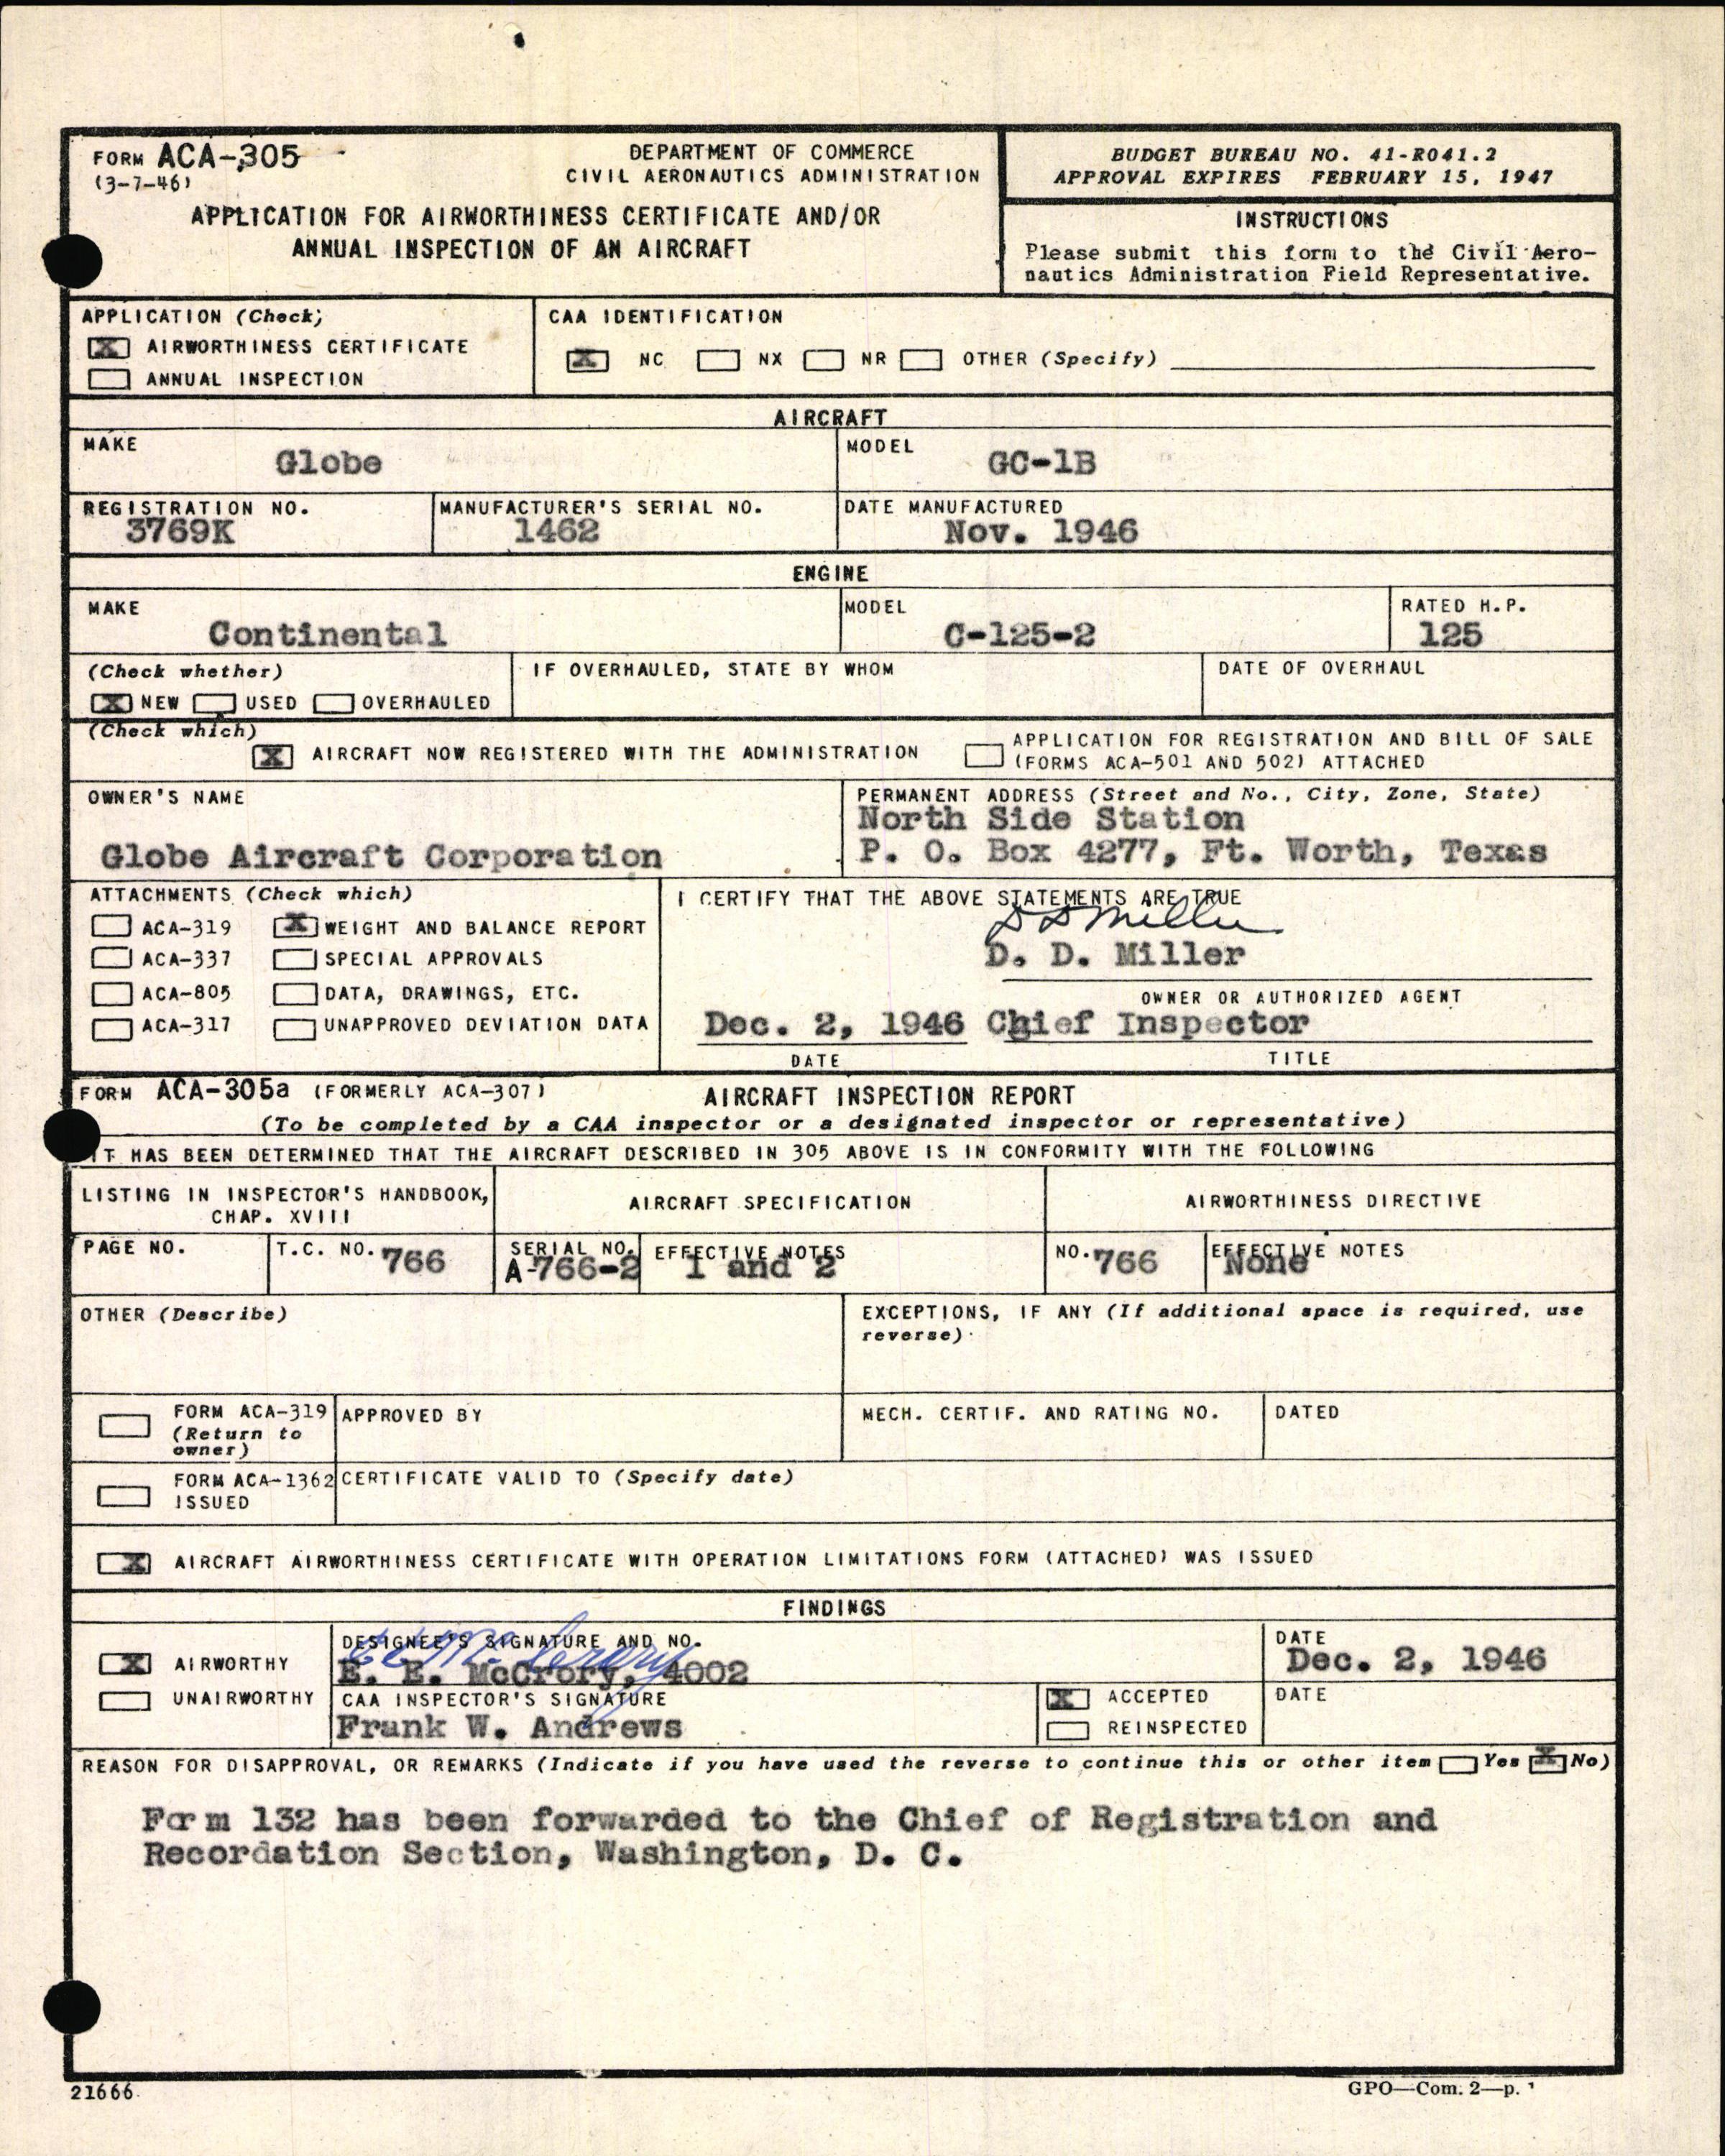 FORM ACA-305
(3-7-46)
DEPARTMENT OF COMMERCE
CIVIL AERONAUTICS ADMINISTRATION
APPLICATION FOR AIRWORTHINESS CERTIFICATE AND/OR
ANNUAL INSPECTION OF AN AIRCRAFT
BUDGET BUREAU NO. 41-R041.2
APPROVAL EXPIRES FEBRUARY 15, 1947
INSTRUCTIONS
Please submit this form to the Civil Aero-
nautics Administration Field Representative.
APPLICATION (Check)
X AIRWORTHINESS CERTIFICATE
ANNUAL INSPECTION
CAA IDENTIFICATION
X NC NX NR OTHER (Specify)
AIRCRAFT
MAKE
Globe
MODEL
GC-1B
REGISTRATION NO.
3769K
MANUFACTURER'S SERIAL NO.
1462
DATE MANUFACTURED
Nov. 1946
ENGINE
MAKE
Continental
MODEL
C-125-2
RATED H.P.
125
(Check whether)
X NEW USED OVERHAULED
IF OVERHAULED, STATE BY WHOM
DATE OF OVERHAUL
(Check which)
X AIRCRAFT NOW REGISTERED WITH THE ADMINISTRATION
APPLICATION FOR REGISTRATION AND BILL OF SALE
(FORMS ACA-501 AND 502) ATTACHED
OWNER'S NAME
Globe Aircraft Corporation
PERMANENT ADDRESS (Street and No., City, Zone, State)
North Side Station
P. O. Box 4277, Ft. Worth, Texas
ATTACHMENTS (Check which)
ACA-319 X WEIGHT AND BALANCE REPORT
ACA-337 SPECIAL APPROVALS
ACA-805 DATA, DRAWINGS, ETC.
ACA-317 UNAPPROVED DEVIATION DATA
I CERTIFY THAT THE ABOVE STATEMENTS ARE TRUE
D D Miller
D. D. Miller
OWNER OR AUTHORIZED AGENT
Dec. 2, 1946 Chief Inspector
DATE TITLE
FORM ACA-305a (FORMERLY ACA-307) AIRCRAFT INSPECTION REPORT
(To be completed by a CAA inspector or a designated inspector or representative)
IT HAS BEEN DETERMINED THAT THE AIRCRAFT DESCRIBED IN 305 ABOVE IS IN CONFORMITY WITH THE FOLLOWING
LISTING IN INSPECTOR'S HANDBOOK,
CHAP. XVIII
AIRCRAFT SPECIFICATION
AIRWORTHINESS DIRECTIVE
PAGE NO.
T.C. NO. 766
SERIAL NO.
A-766-2
EFFECTIVE NOTES
1 and 2
NO. 766
EFFECTIVE NOTES
None
OTHER (Describe)
EXCEPTIONS, IF ANY (If additional space is required, use
reverse)
FORM ACA-319
(Return to
owner)
APPROVED BY
MECH. CERTIF. AND RATING NO.
DATED
FORM ACA-1362
ISSUED
CERTIFICATE VALID TO (Specify date)
X AIRCRAFT AIRWORTHINESS CERTIFICATE WITH OPERATION LIMITATIONS FORM (ATTACHED) WAS ISSUED
FINDINGS
X AIRWORTHY
UNAIRWORTHY
DESIGNEE'S SIGNATURE AND NO.
E E McCrory
E. E. McCrory, 4002
DATE
Dec. 2, 1946
CAA INSPECTOR'S SIGNATURE
Frank W. Andrews
X ACCEPTED
REINSPECTED
DATE
REASON FOR DISAPPROVAL, OR REMARKS (Indicate if you have used the reverse to continue this or other item Yes X No)
Form 132 has been forwarded to the Chief of Registration and
Recordation Section, Washington, D. C.
21666
GPO—Com. 2—p.